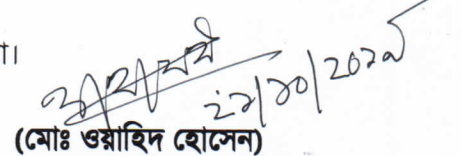 া।
২১/১০/২০১৯
(মোঃ ওয়াহিদ হোসেন)